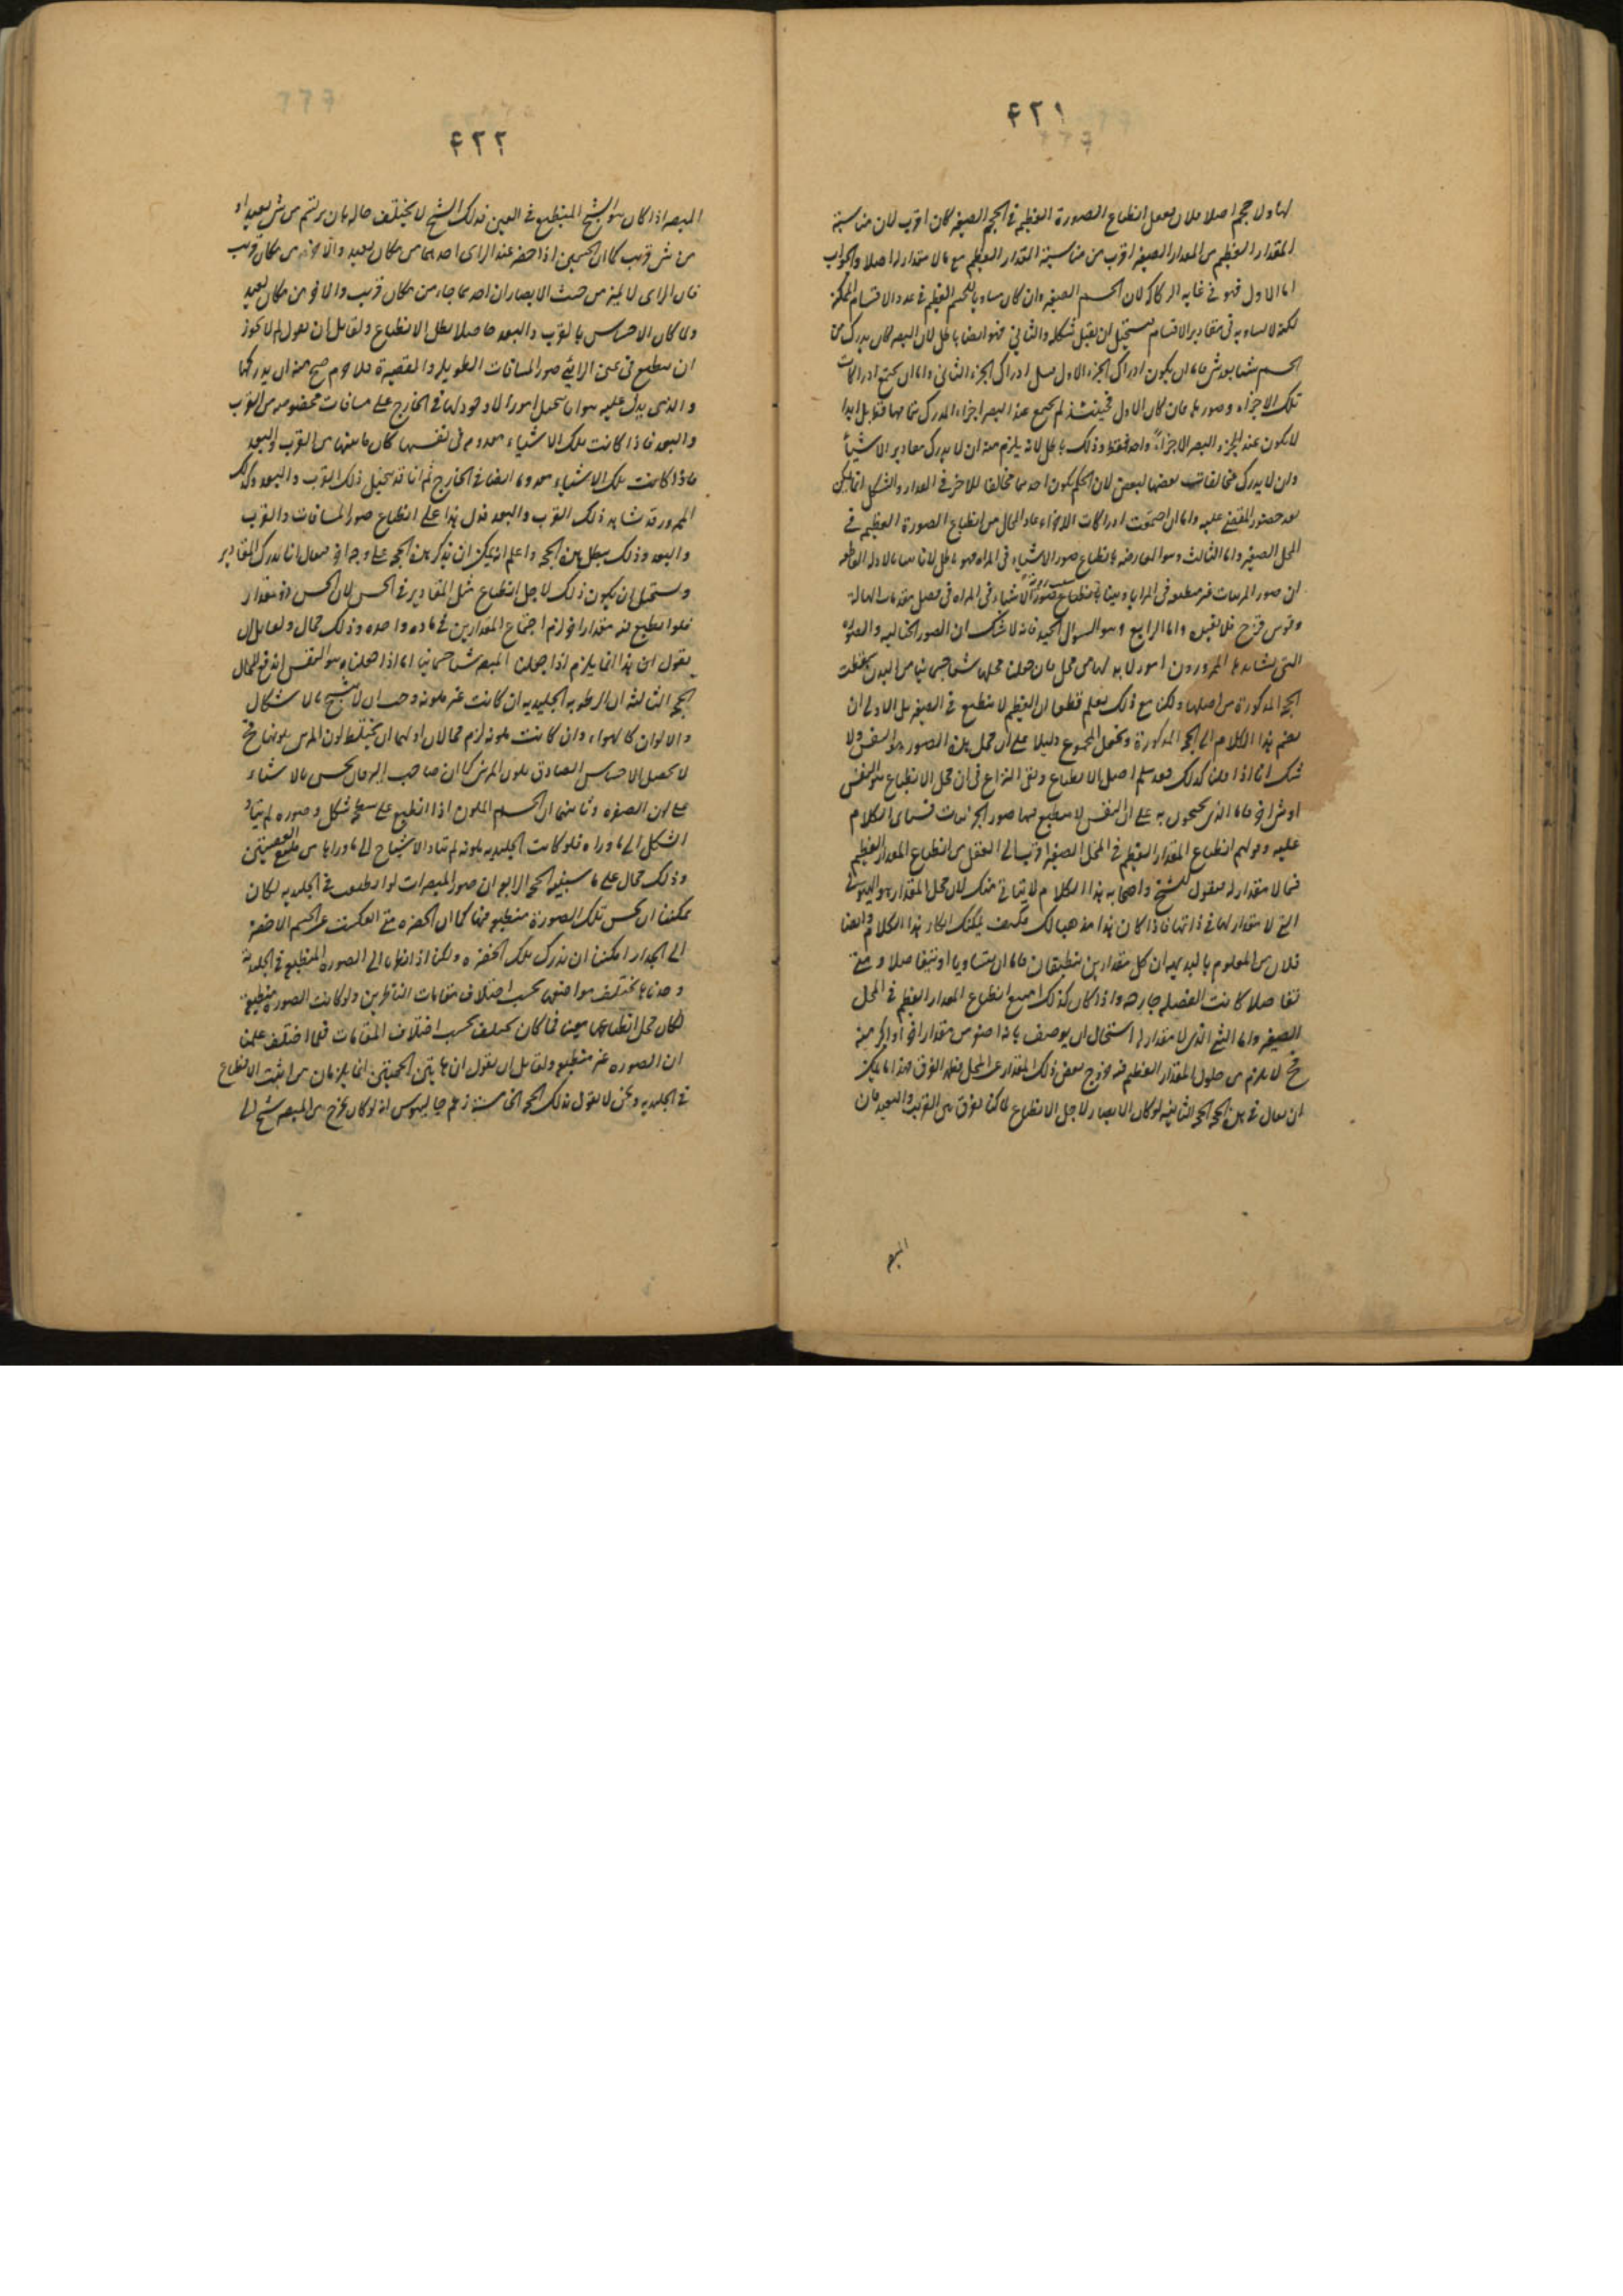 ٤٢١
لها ولا حجم اصلا فلان يعقل انطباع الصورة العظيمة فى الحجم الصغير كان اقرب لان مناسبة
المقدار العظيم من المقدار الصغير اقرب من مناسبة المقدار العظيم مع ما لا مقدار له اصلا والجواب
اما الاول فهو فى غاية الركاكة لان الجسم الصغير وان كان مساويا للجسم العظيم فى عدد الاقسام الممكنة
لكنه لا يساويه فى مقادير الاقسام فيستحيل ان يقبل شكله والثانى فهو ايضا باطل لان البصر لو كان يدرك من
الجسم شيئا بعد شئ فاما ان يكون ادراك الجزء الاول قبل ادراك الجزء الثانى واما ان يجتمع ادراكات
تلك الاجزاء وصورها فان كان الاول فحينئذ لم يجتمع عند البصر اجزاء المدرك بتمامها قط بل ابدا
لا يكون عند البصر الاجزاء واحد فقط وذلك باطل لانه يلزم منه ان لا يدرك مقادير الاشياء
وان لا يدرك مخالفات بعضها لبعض لان الحكم بكون احدهما مخالفا للاخر فى المقدار والشكل انما يمكن
بعد حضور المقضى عليه واما ان اجتمعت ادراكات الاجزاء عاد المحال من انطباع الصورة العظيمة فى
المحل الصغير واما الثالث وهو المعارضة بانطباع صور الاشياء فى المرآة فهو باطل لانا بينا بالادلة القاطعة
ان صور المرئيات غير منطبعة فى المرايا وبينا انطباع صور الاشياء فى المراه فى فصل مقدمات الهالة
وقوس قزح فلا نعيده واما الرابع وهو السؤال الجيد فانه لا شك ان الصور الخيالية والصور
التى يشاهدها الممرورون امور لا بد لها من محل فان جعلنا محلها شيئا جسمانيا من البدن بطلت
الحجة المذكورة من اصلها ولكن مع ذلك نعلم قطعا ان العظيم لا ينطبع فى الصغير بل الاولى ان
نضم هذا الكلام الى الحجة المذكورة ونجعل المجموع دليلا على ان محل هذه الصور هو النفس ولا
شك انا اذا قلنا كذلك فقد سلم اصل الانطباع وبقى النزاع فى ان محل الانطباع هو النفس
او شئ اخر فاما الذى يحتجون به على ان النفس لا ينطبع فيها صور الجزئيات فسياتى الكلام
عليه وقولهم انطباع المقدار العظيم فى المحل الصغير اقرب الى العقل من انطباع المقدار العظيم
فيما لا مقدار له فنقول للشيخ واصحابه هذا الكلام لا يتاتى منك لان محل المقدار هو الهيولى
التى لا مقدار لها فى ذاتها فاذا كان هذا مذهبا لك فكيف يمكنك انكار هذا الكلام وايضا
فلان من المعلوم بالبديهة ان كل مقدارين ينطبقان فاما ان يتساويا او يتفاضلا ومتى
تفاضلا كانت الفضلة خارجة واذا كان كذلك امتنع انطباع المقدار العظيم فى المحل
الصغير واما الشئ الذى لا مقدار له استحال ان يوصف بانه اصغر من مقدار اخر او اكبر منه
فح لا يلزم من حلول المقدار العظيم فيه خروج بعض ذلك المقدار عن المحل فظهر الفرق فهذا ما يمكن
ان يقال فى هذه الحجة الحجة الثانية لو كان الابصار لاجل الانطباع لما كنا نفرق بين القريب والبعيد فان
المبصر
٤٢٢
المبصر اذا كان هو الشبح المنطبع فى العين فذلك الشبح لا يختلف حاله بان يرتسم من شئ بعيد او
من شئ قريب كما ان الجسمين اذا حضر عند الرائى احدهما من مكان بعيد والاخر من مكان قريب
فان الرائى لا يميز من حيث الابصار ان احدهما جاء من مكان قريب والاخر من مكان بعيد
ولما كان الاحساس بالقرب والبعد حاصلا بطل الانطباع ولقائل ان يقول لم لا يجوز
ان ينطبع فى عين الرائى صور المسافات الطويلة والقصيرة فلا جرم صح منه ان يدركها
والذى يدل عليه هو انا نتخيل امورا لا وجود لها فى الخارج على مسافات مخصوصة من القرب
والبعد فاذا كانت تلك الاشياء معدومة فى نفسها كان ما بينها من القرب والبعد
فاذا كانت تلك الاشياء معدوما ايضا فى الخارج ثم انا قد نتخيل ذلك القرب والبعد وكذلك
الممرور قد شاهد ذلك القرب والبعد فدل هذا على انطباع صور المسافات والقرب
والبعد وذلك يبطل هذه الحجة واعلم انه يمكن ان يذكر هذه الحجة على وجه اخر فيقال انا ندرك المقادير
ويستحيل ان يكون ذلك لاجل انطباع مثل المقادير فى الحس لان الحس ذو مقدار
فلو انطبع فيه مقدار اخر لزم اجتماع المقدارين فى مادة واحدة وذلك محال ولقائل ان
يقول ان هذا انما يلزم اذا جعلنا المبصر شيئا جسمانيا اما اذا جعلناه هو النفس اندفع المحال
الحجة الثالثة ان الرطوبة الجليدية ان كانت غير ملونة وجب ان لا يتشبح بالاشكال
والالوان كالهواء وان كانت ملونة لزم محالان اولهما ان يختلط لون المرئى بلونها فح
لا يحصل الاحساس الصادق بلون المرئى كما ان صاحب اليرقان يحس بالاشياء
على لون الصفرة وثانيهما ان الجسم الملون اذا انطبع على سطحه شكل وصوره لم يتاد
الشكل الى ما وراه فلو كانت الجليدية ملونة لم تتاد الاشباح الى ما وراها من ملتقى العصبتين
وذلك محال على ما سيقف الحجة الرابعة ان صور المبصرات لو انطبعت فى الجليدية لكان
يمكننا ان نحس تلك الصورة منطبعة فيها كما ان الخضرة متى انعكست عن الجسم الاخضر
الى الجدار امكننا ان ندرك تلك الخضرة ولكنا اذا نظرنا الى الصورة المنطبعة فى الجليدية
وجدناها يختلف مواضعها بحسب اختلاف مقامات الناظرين ولو كانت الصورة منطبعة
لكان محل انطباعها معينا فما كان يختلف بحسب اختلاف المقامات فلما اختلف علمنا
ان الصورة غير منطبعة ولقائل ان يقول ان هاتين الحجتين انما يلزمان من اثبت الانطباع
فى الجليدية ونحن لا نقول بذلك الحجة الخامسة زعم جالينوس انه لو كان يخرج من المبصر شبح الى